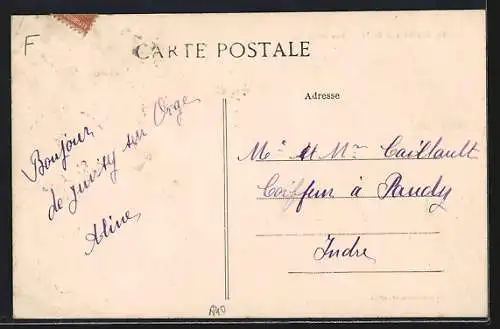 F
CARTE POSTALE
Adresse
Bonjour
de Juvisy sur Orge
Aline
Mr et Mme Caillault
Coiffeur à Paudy
Indre
A40